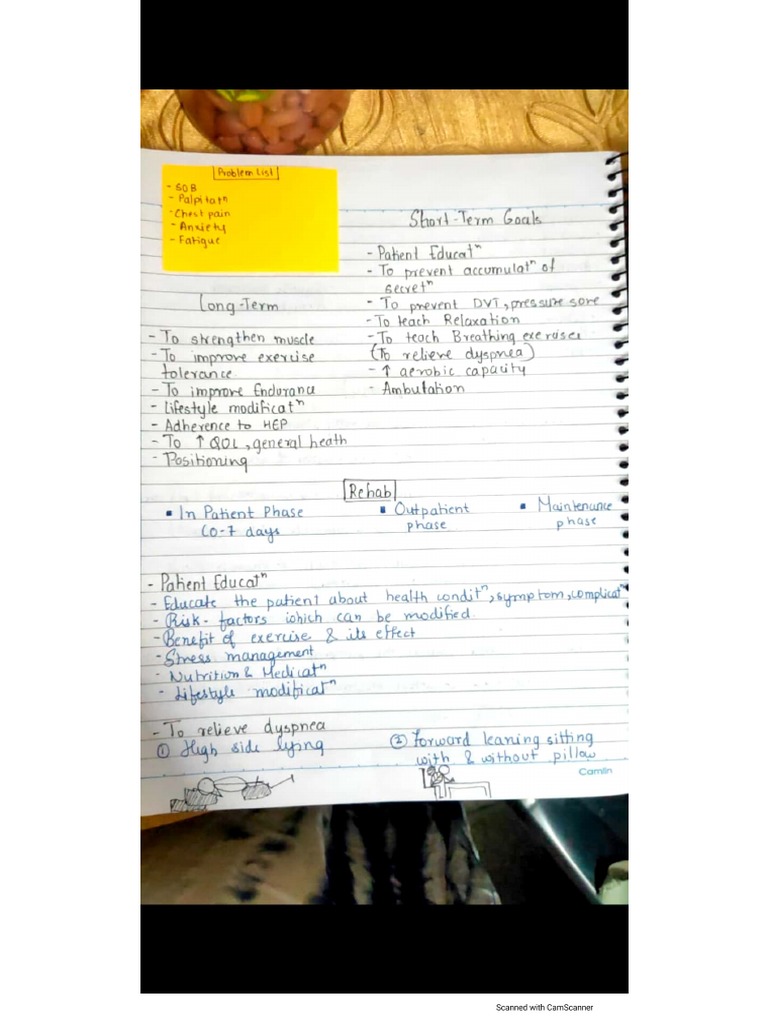 Problem List
- SOB
- Palpitatⁿ
- Chest pain
- Anxiety
- Fatigue
Short-Term Goals
- Patient Educatⁿ
- To prevent accumulatⁿ of
secretⁿ
- To prevent DVT, pressure sore
- To teach Relaxation
- To teach Breathing exercises
(To relieve dyspnea)
- ↑ aerobic capacity
- Ambulation
Long-Term
- To strengthen muscle
- To improve exercise
tolerance
- To improve Endurance
- Lifestyle modificatⁿ
- Adherence to HEP
- To ↑ QOL, general heath
- Positioning
Rehab
▪ In Patient Phase ▪ Outpatient ▪ Maintenance
(0-7 days phase phase
- Patient Educatⁿ
- Educate the patient about health conditⁿ, symptom, complicatⁿ
- Risk-factors which can be modified
- Benefit of exercise & its effect
- Stress management
- Nutrition & Medicatⁿ
- Lifestyle modificatⁿ
- To relieve dyspnea
① High side lying ② Forward leaning sitting
with & without pillow
Camlin
Scanned with CamScanner